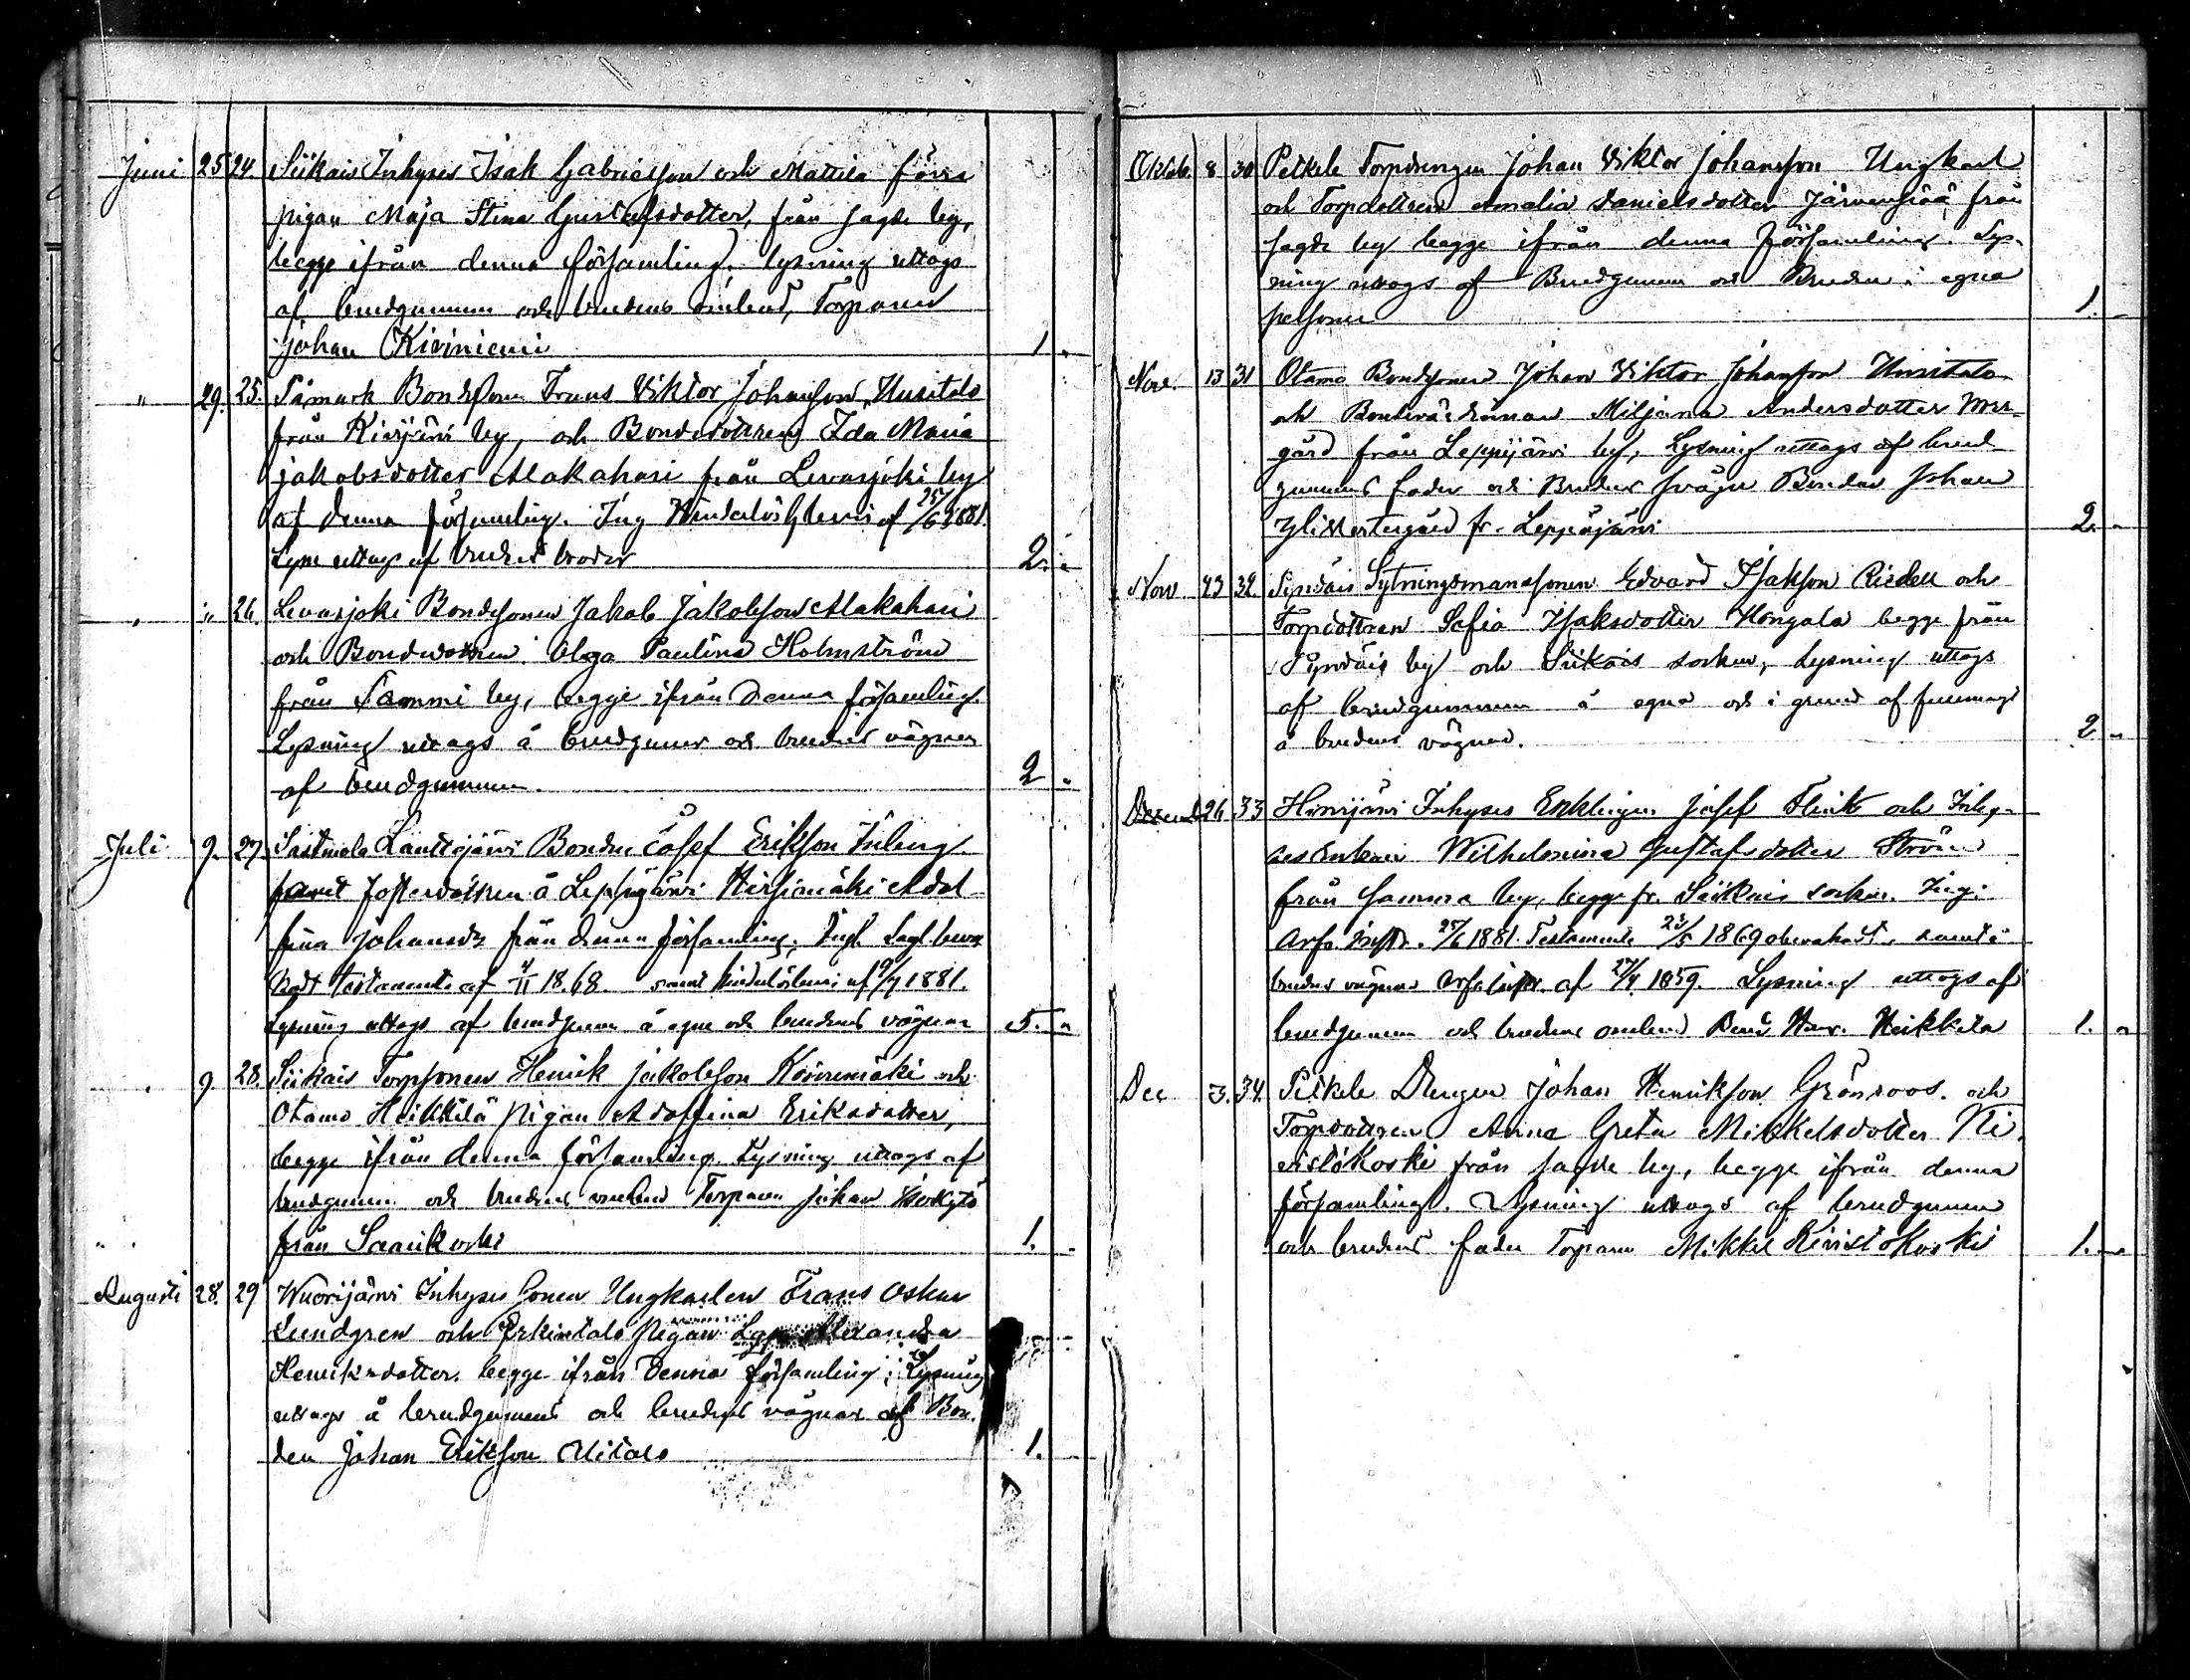 Juni 25 24. Siikais Inhyses Isak Gabrielsson och Mattila förra
pigan Maja Stina Gustafsdotter, från sagde by,
begge ifrån denna församling. Lysning uttogs
af brudgummen och brudens ombud, Torparen
Johan Kiviniemi 1 "
" 29. 25. Sämark Bondsonen Frans Viktor Johansson Uusitalo
från Kivijärvi by, och Bondedottren Ida Maria
Jakobsdotter Alakahari från Levasjoki by
af denna församling. Ing 25/6 1881.
Lysn uttogs af brudens broder 2. "
" " 26. Levasjoki Bondsonen Jakob Jakobsson Alakahari
och Bondedottren Olga Paulina Holmström
från Sammi by, begge ifrån denna församling.
Lysning uttogs å brudgummens och brudens vägnar
af brudgummen. 2 "
Juli 9. 27. Sastmola Lauttijärvi Bonden Josef Eriksson
samt fosterdottren å Leppijärvi Hirsimäki Adol-
fina Johansdr från denna församling.
testamente af 4/11 18.68. samt af 9/7 1881.
Lysning uttogs af brudgummen å egna och brudens vägnar 5. "
" 9. 28. Siikais Torpsonen Henrik Jakobsson Koivumäki och
Otamo Heikkilä pigan Adolfina Eriksdotter,
begge ifrån denna församling. Lysning uttogs af
brudgummen och brudens ombud Torparen Johan
från Samikoski 1. "
Augusti 28. 29 Wuorijärvi Inhyses sonen Ungkarlen Frans Oskar
Lundgren och pigan Alexandra
Henriksdotter, begge ifrån denna församling; Lysning
uttogs å brudgummens och brudens vägnar af Bon-
den Johan Eriksson Uitalo 1.
Oktob. 8 30 Petkele Torpdrengen Johan Viktor Johansson Ungkarl
och Torpdottren Amalia Danielsdotter Järvensivu från
sagde by begge ifrån denna församling. Lys-
ning uttogs af Brudgummen och Bruden i egna
personer 1. "
Nov. 13 31 Otamo Bondsonen Johan Viktor Johansson Uusitalo
och Miljana Andersdotter
gård från Leppijärvi by, Lysning uttogs af brud-
gummens fader och Brudens svåger Bonden Johan
fr. Leppijärvi 2. "
Nov 23 32. Sytningsmanssonen Edvard Isaksson Riedell och
Torpdottren Sofia Isaksdotter Hongala begge från
by och Siikais socken, Lysning uttogs
af brudgummen å egna och i grund af fullmagt
å brudens vägnar. 2 "
Decemb 26 33 Inhyses Enklingen Josef Flink och Inhy-
ses Enkan Wilhelmina Gustafsdotter Ström
från samma by, begge fr. Siikais socken. Ing.
Arfs 25/6 1881. Testamente 23/5 1869 samt å
brudens vägnar af 27/4 1859. Lysning uttogs af
brudgummen och brudens ombud Heikkilä 1. "
Dec 3. 34. Petkele Drengen Johan Henriksson Grönroos och
Torpdottren Anna Greta Mikkelsdotter Ki-
vistökoski från sagde by, begge ifrån denna
församling. Lysning uttogs af brudgummen
och brudens fader Torparen Mikkel Kivistökoski 1. "